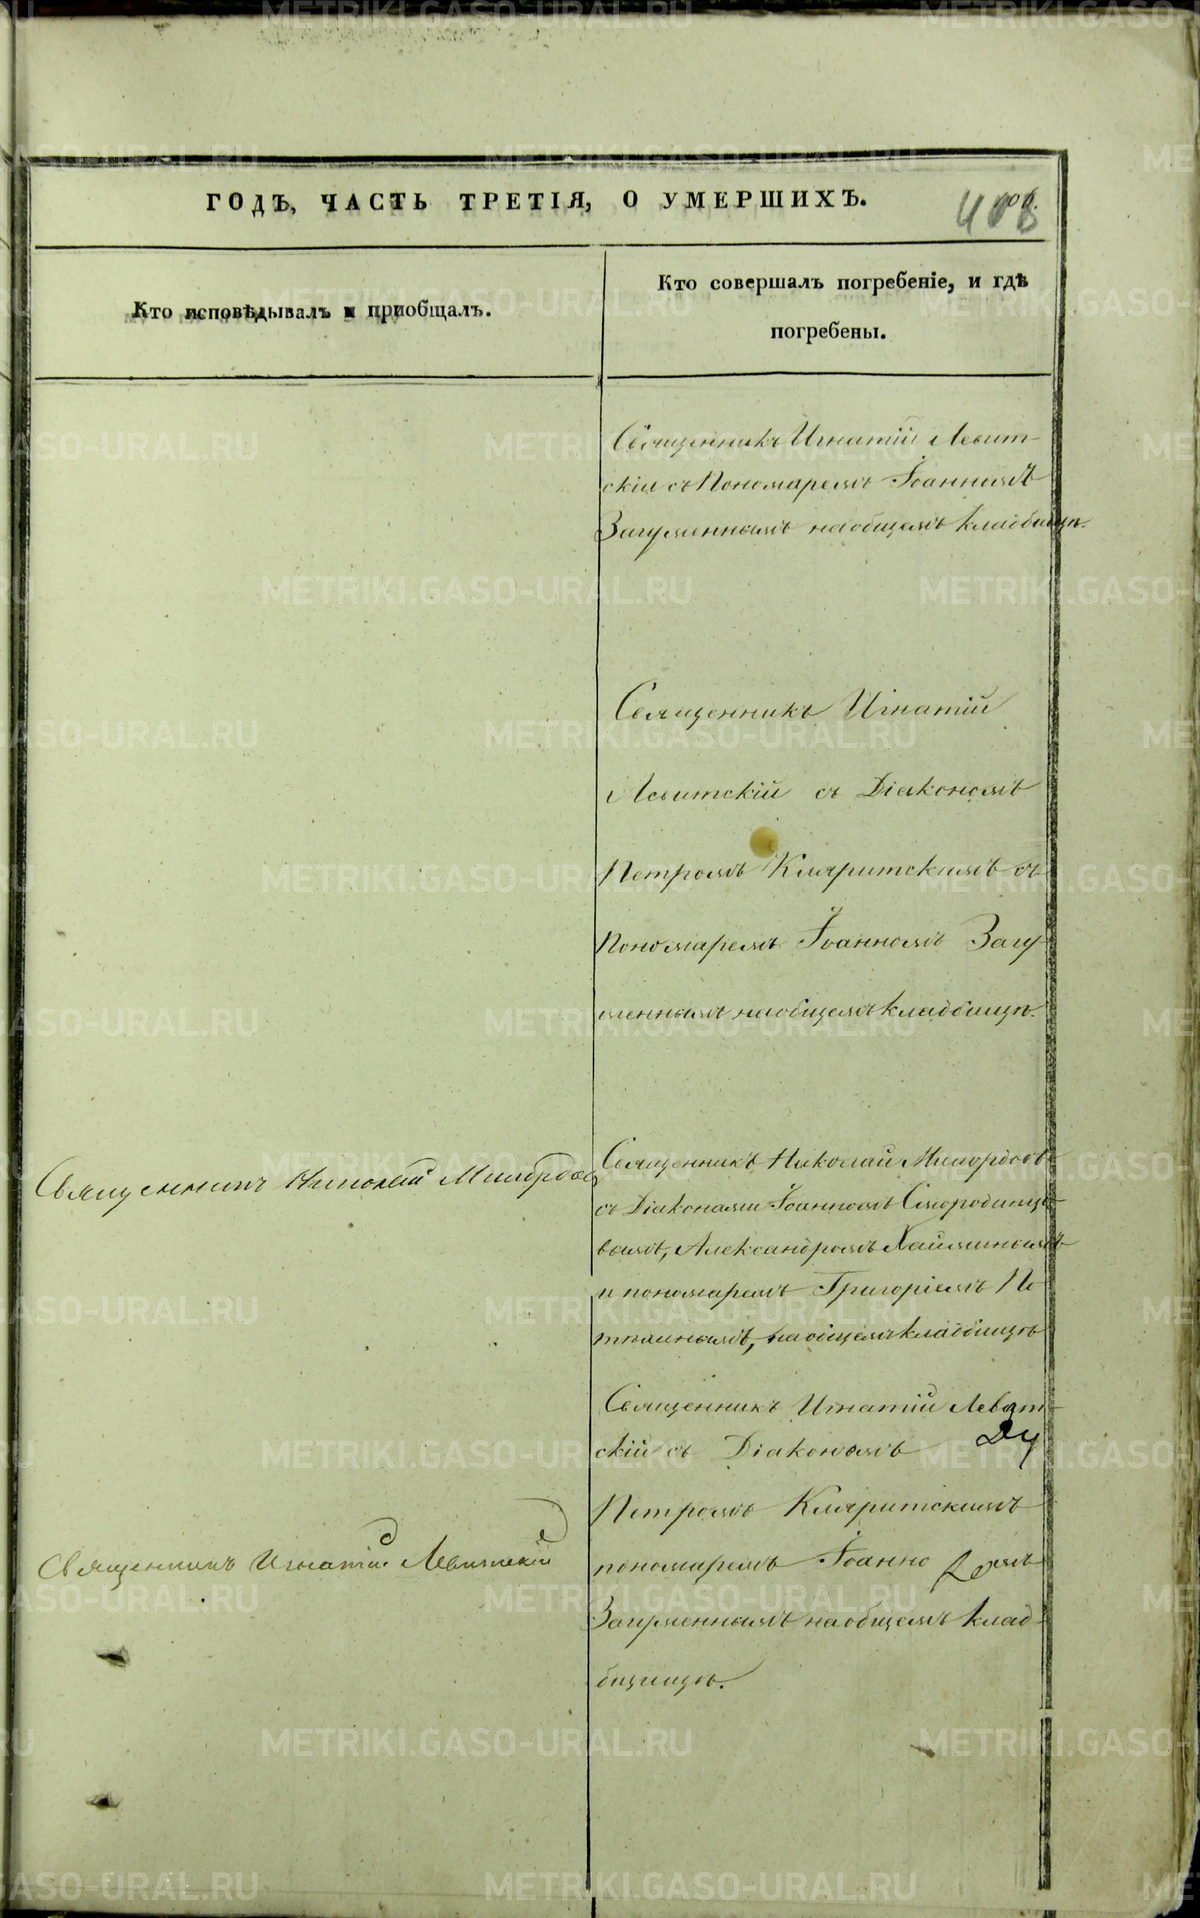 ГОДЪ, ЧАСТЬ ТРЕТІЯ, О УМЕРШИХЪ.
Кто исповѣдывалъ и пріобщалъ.
Кто совершалъ погребеніе, и гдѣ
погребены.
Священникъ Игнатій Левит-
скій съ Пономаремъ Іоанномъ
Загуменнымъ на общемъ кладбищѣ.
Священникъ Игнатій
Левитскій съ Діакономъ
Петромъ Кляритскимъ съ
Пономаремъ Іоанномъ Загу-
меннымъ на общемъ кладбищѣ.
Священникъ Николай Милордовъ
Священникъ Николай Милордовъ
съ Діаконами Іоанномъ Смородинце-
вымъ, Александромъ Хайминымъ
и пономаремъ Григоріемъ
на общемъ кладбищѣ
Священникъ Игнатій Левит-
скій съ Діакономъ
Петромъ Кляритскимъ
Священникъ Игнатій Левитскій
пономаремъ Іоанномъ
Загуменнымъ на общемъ клад-
бищѣ.
METRIKI.GASO-URAL.RU